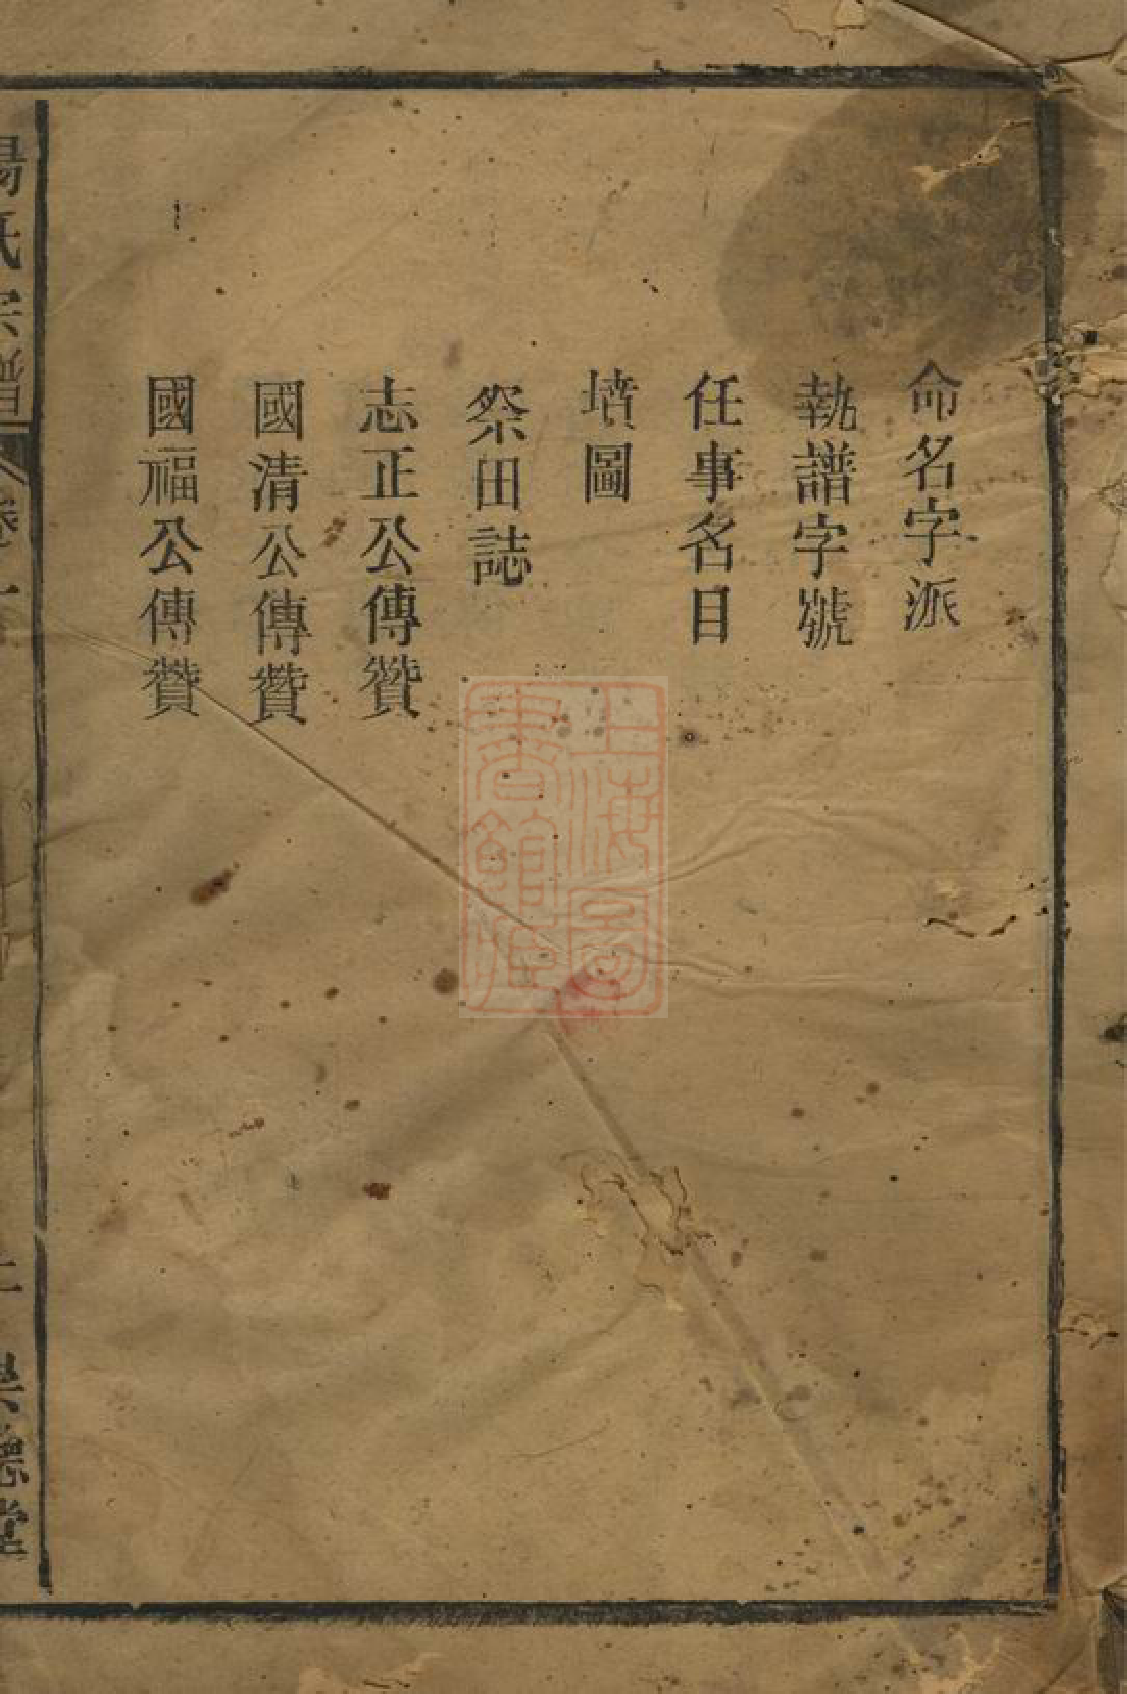 命名字派
執譜字號
任事名目
墳圖
祭田誌
志正公傳贊
國清公傳贊
國福公傳贊
上海圖書館藏